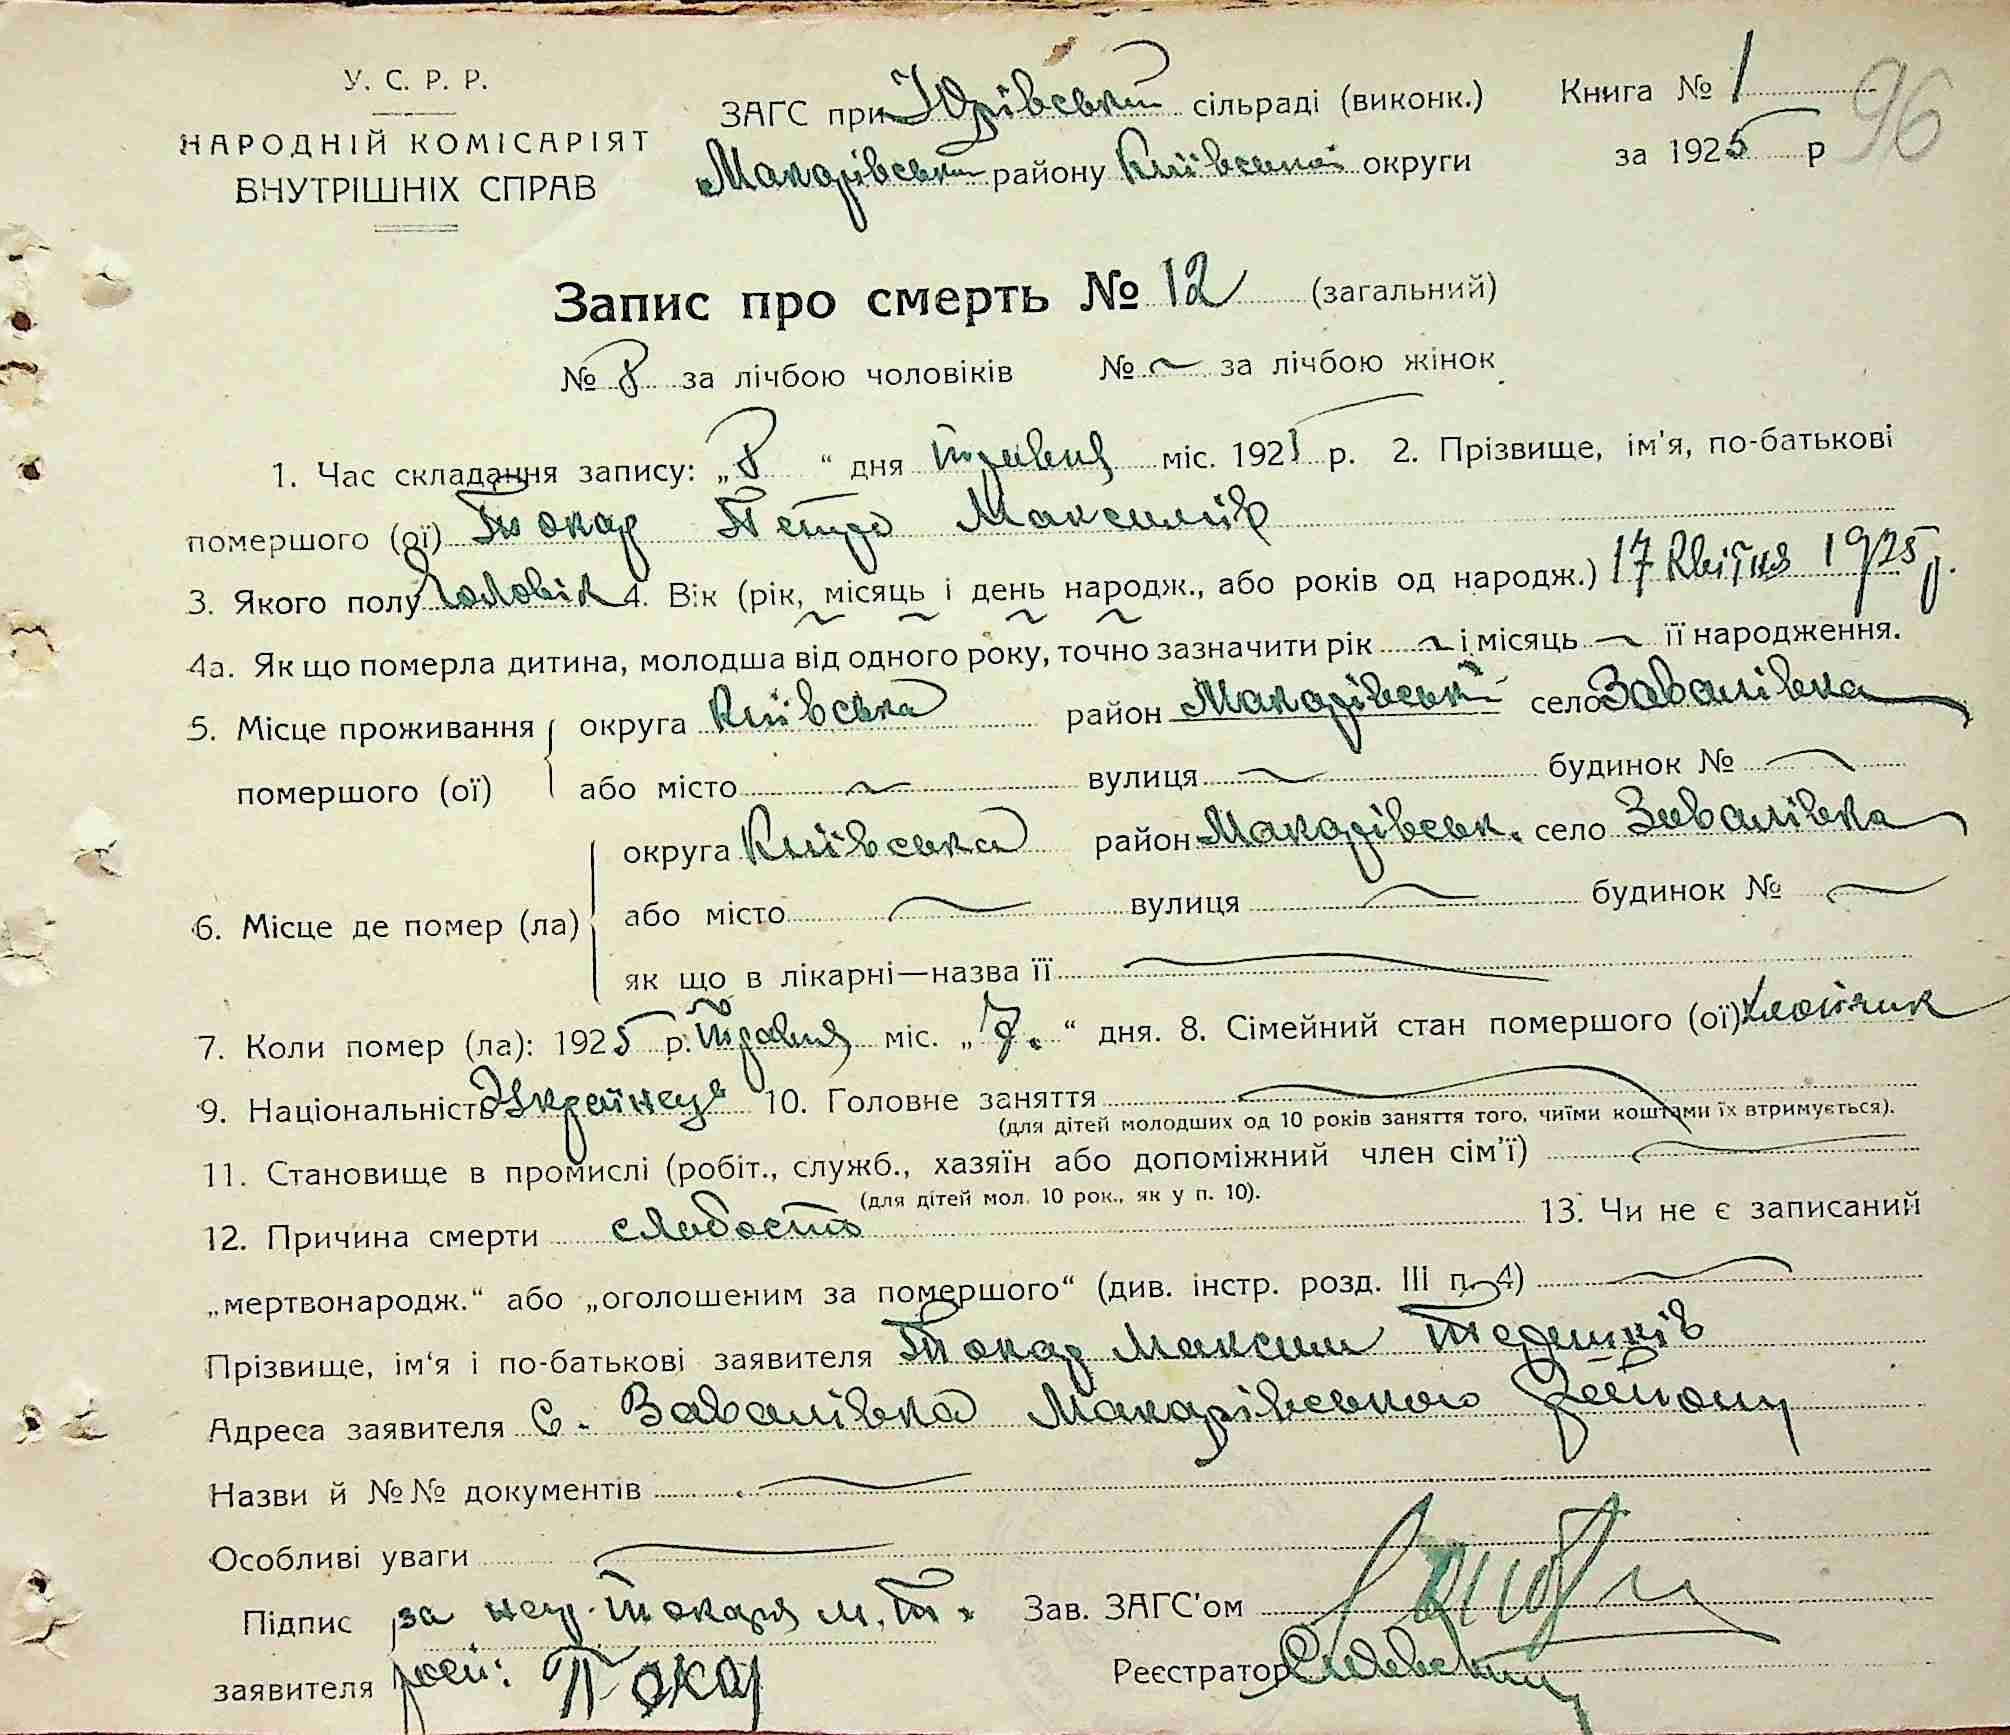 У. С. Р. Р.
НАРОДНІЙ КОМІСАРІЯТ
ВНУТРІШНІХ СПРАВ
ЗАГС при Юрівській сільраді (виконк.)
Макарівськ. району Київської округи
Книга № 1
за 1925 р
96
Запис про смерть № 12 (загальний)
№ 8 за лічбою чоловіків № ~ за лічбою жінок
1. Час складання запису: „8“ дня травня міс. 1925 р. 2. Прізвище, ім'я, по-батькові
помершого (ої) Токар Петро Максимів
3. Якого полу Чоловік 4. Вік (рік, місяць і день народж., або років од народж.) 17 Квітня 1925 р.
4а. Як що померла дитина, молодша від одного року, точно зазначити рік ~ і місяць ~ її народження.
5. Місце проживання помершого (ої) округа Київська район Макарівський село Завалівка
або місто ~ вулиця ~ будинок № ~
6. Місце де помер (ла) округа Київська район Макарівськ. село Завалівка
або місто ~ вулиця ~ будинок № ~
як що в лікарні—назва її ~
7. Коли помер (ла): 1925 р. Травня міс. „7.“ дня. 8. Сімейний стан помершого (ої) хлопчик
9. Національність Українець 10. Головне заняття ~
(для дітей молодших од 10 років заняття того, чиїми коштами їх втримується).
11. Становище в промислі (робіт., служб., хазяїн або допоміжний член сім'ї) ~
(для дітей мол. 10 рок., як у п. 10).
12. Причина смерти слабосто 13. Чи не є записаний
„мертвонародж.“ або „оголошеним за помершого“ (див. інстр. розд. III п. 4) ~
Прізвище, ім'я і по-батькові заявителя Токар Максим
Адреса заявителя С. Завалівка Макарівського району
Назви й №№ документів ~
Особливі уваги ~
Підпис за неп. Токаря М. Т. Зав. ЗАГС'ом
заявителя Токар Реєстратор